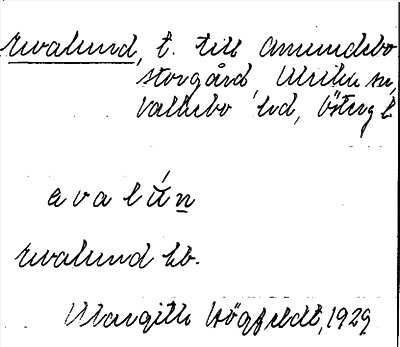 Evalund, t. till Amundebo
storgård, Ulrika sn,
Valkebo hd, Östergl
avalún
Evalund kb.
Margith Högfeldt, 1929